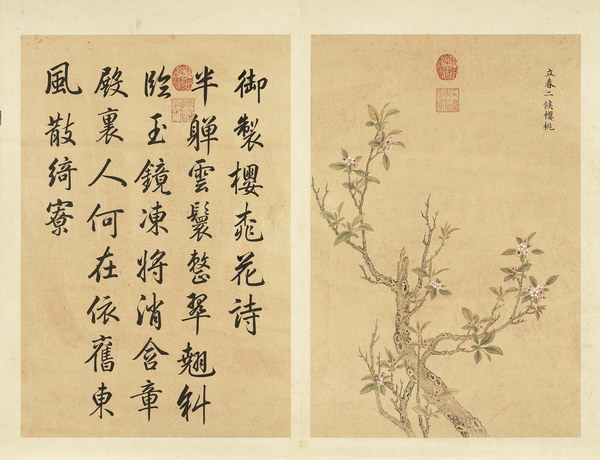 立春二候櫻桃
御製櫻桃花詩
半軃雲鬟整翠翹斜
臨玉鏡凍將消含章
殿裏人何在依舊東
風散綺寮